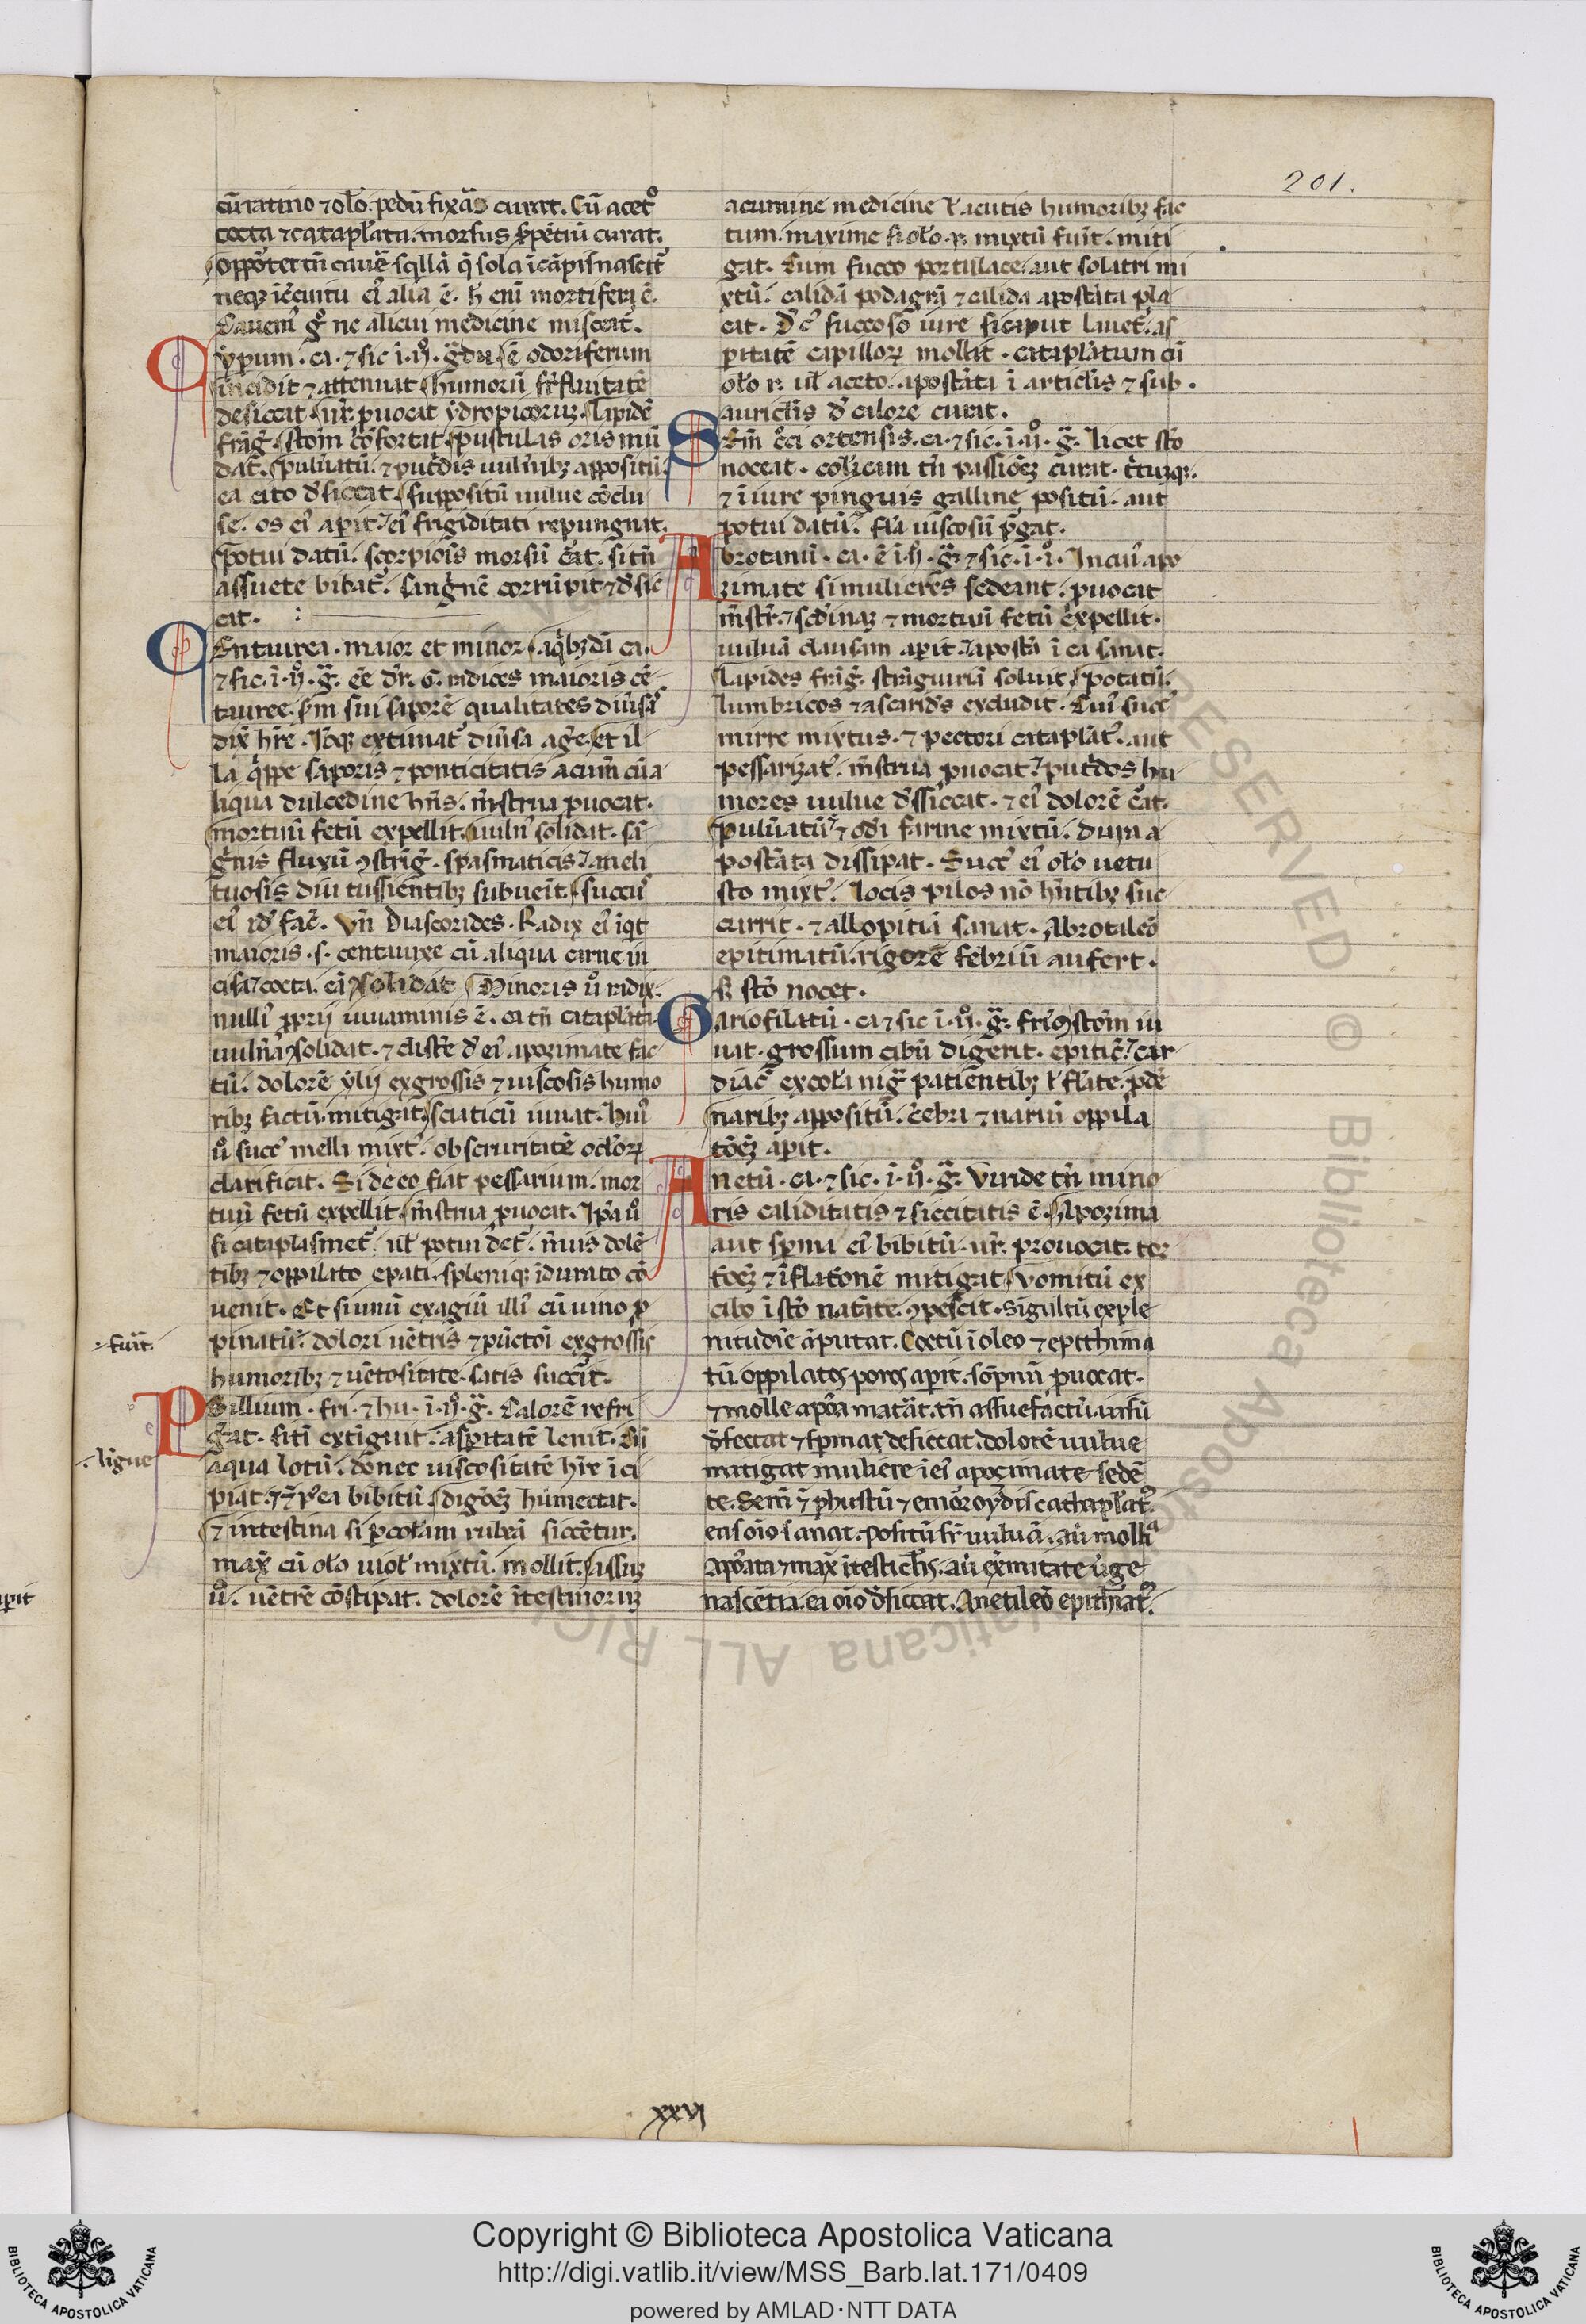 201.
cũ ratino ⁊ olõ. pedũ fixãs curat. Cũ acetº
cocta ⁊ catapl̃ata. morsus ẜpẽtiũ curat.
oppõtet tñ cauẽ sqllã q̃ sola ĩ cãpis nascit᷑
neq; ĩ ẽcuitu ei᷒ alia ẽ. h̃ enĩ mortifera ẽ.
Cauem᷒ gº ne alicui medicine misceat᷑.
Cyp̱um. ca. ⁊ sic ĩ. ijº. g̃du. ẽ odoriferum
incidit ⁊ attenuat humorũ
desiccat. ur̃. puocat ydropicorum. lapidẽ
frãg̃. stom̃ cõfortat. pustulas oris mũ
dat. puluatũ. ⁊ put̃dis uul̃nib; appositũ.
ea cito desiccat. suppositũ uulue cõclu
se. os ei᷒ apit. ei᷒ frigiditati repungnat.
potui datũ. scorpiõis morsũ c̃at. si tñ
assuete bibat᷑. sang̃nẽ corrũpit ⁊ desic
cat.
Centaurea. maior et minor. a q̃b;dã ca.
⁊ sic. ĩ. ijº. g̃. eẽ dr̃. G. radices maioris cẽ
tauree. sm̃ sui saporẽ qualitates diũsas
dix̃ hr̃e. Itq; extimat᷑ diũsa ag̃e. et il
la q̃ppe saporis ⁊ ponticitatis acum̃ cũ a
liqua dulcedine hñs. mẽstrua puocat.
mortuũ fetũ expellit. uuln᷒ solidat. sã
g̃nis fluxũ ꝯstrĩg̃. spasmaticis. aneli
tuosis diu tussientib; subueit. succus
ei᷒ id᷒ fac̃. vñ Diascorides. Radix ei᷒ iq̃t
maioris. s. centauree cũ aliqua carne in
cisa ⁊ cocta. eã ꝯsolidat. Minoris uº radix
nulli᷒ pprij iuuaminis ẽ. ea tñ catapl̃ata
uulña ꝯsolidat. ⁊ clist̃e d᷒ ei᷒ apozimate fac
tũ. dolorẽ ylij ex grossis ⁊ uiscosis humo
rib; factũ. mitigat. sciaticũ iuuat. hui᷒
uº succ᷒ melli mixt᷒. obscuritatẽ oclor̃
clarificat. Si de eo fiat pessarium. mor
tuũ fetũ expellit. m̃strua puocat. Ip̃a uº
si cataplasmet᷑. ul̃ potui det᷑. neruis dolẽ
tib; ⁊ oppilato epati. spleniq; ĩdurato cõ
uenit. Et si unũ exagiũ illi᷒ cũ uino p
pinatũ. dolori uẽtris ⁊ pũctoĩ ex grossis
·fuit.
humorib; ⁊ uẽtositate. satis succ̃it.
Psillium. fri. ⁊ hu. ĩ. ijº. g̃. Calorẽ refri
g̃at. sitĩ extĩguit. aspitatẽ lenit. Cũ
·ligue
aqua lotũ. donec uiscositatẽ hr̃e ĩci
piat. ⁊ p᷒ea bibitũ. digõez humectat.
⁊ intestina si p col̃am rubeã siccẽtur.
max̃ cũ olõ uiol̃ mixtũ. mollit. assuz
uº. uẽtrẽ cõstipat. dolorẽ ĩtestinoruz
acumine medicine ul̃ acutis humorib; fac
tum. maxime si olõ. r̃. mixtũ fuit. miti
gat. Cum succo portulace. aut solatri mi
xtũ. calidã podagrã ⁊ calida apostãta pla
cat. succo sõ iure si caput lauet᷑. as
pitatẽ capillor̃ mollit. catapl̃atum cũ
olõ r̃. ul̃ aceto. apostãta ĩ articl̃is ⁊ sub.
auricl̃is d᷒ calore curat.
Sem̃ ẽci ortensis. ca. ⁊ sic. ĩ. ijº. g̃. licet stõ
noceat. colicam tñ passiõez curat.
⁊ ĩ iure pinguis galline positũ. aut
potui datũ. fl̃a uiscosũ p̃gat.
Abrotanũ. ca. ẽ ĩ. ij. g̃. ⁊ sic. ĩ. iº. In cui᷒ apo
zimate si mulieres sedeant. puocat
m̃str̃. ⁊ scdinaz ⁊ mortuũ fetũ expellit.
uuluã clausam apit. aposta ĩ ea sanat.
lapides frãg̃. strãguiriã soluit. potatũ.
lumbricos ⁊ ascarid᷒s excludit. Cui᷒ succ᷒
mirre mixtus. ⁊ pectori catapl̃at᷒. aut
pessarizat᷒. m̃strua puocat. put̃dos hu
mores uulue d᷒ssiccat. ⁊ ei᷒ dolorẽ c̃at.
puluatũ ⁊ ordi farine mixtũ. dura a
postãta dissipat. Succ᷒ ei᷒ olõ uetu
sto mixt᷒. locis pilos nõ hñtib; suc
currit. ⁊ allopitiã sanat. Abrotileõ
epitimatũ. rigorẽ febriũ aufert.
ẜ; stõ nocet.
Gariofilatũ. ca ⁊ sic ĩ. ijº. g̃. fri᷒ stom̃ iu
uat. grossum cibũ digerit. epitic̃. car
diac̃ ex col̃a nig̃ patientib; ul̃ fl̃ate. pdẽ
narib; appositũ. c̃ebri ⁊ nariũ oppila
tõez apit.
Anetũ. ca. ⁊ sic. ĩ. ijº. g̃. Viride tñ mino
ris caliditatis ⁊ siccitatis ẽ. Apozima
aut sp̃ma ei᷒ bibitũ. ur̃. prouocat. tor
tõez ⁊ ĩflatõnẽ mitigat. vomitũ ex
cibo ĩ stõ natãte. ꝯpescit. Sigultũ ex ple
nitudĩe ãputat. Coctũ ĩ oleo ⁊ epithima
tũ. oppilatos poros apit. sõpnũ puocat.
⁊ molle apõa maturat. tñ assuefactũ. uisũ
d᷒fectat ⁊ sp̃ma desiccat. dolorẽ uulue
mitigat muliere ĩ ei᷒ apoçimate sedẽ
te. Sem̃ ⁊ phustũ ⁊ emoroydis cathapl̃at᷑.
eas oĩo sanat. positũ sr̃ uuluã. aũ mollia
apõata ⁊ max̃ ĩ testicl̃is. aũ ex̃mitate uirge
nascẽtia. ea oĩo d᷒siccat. Anetileõ epithiat᷑.
xxvj
Copyright © Biblioteca Apostolica Vaticana
http://digi.vatlib.it/view/MSS_Barb.lat.171/0409
powered by AMLAD·NTT DATA